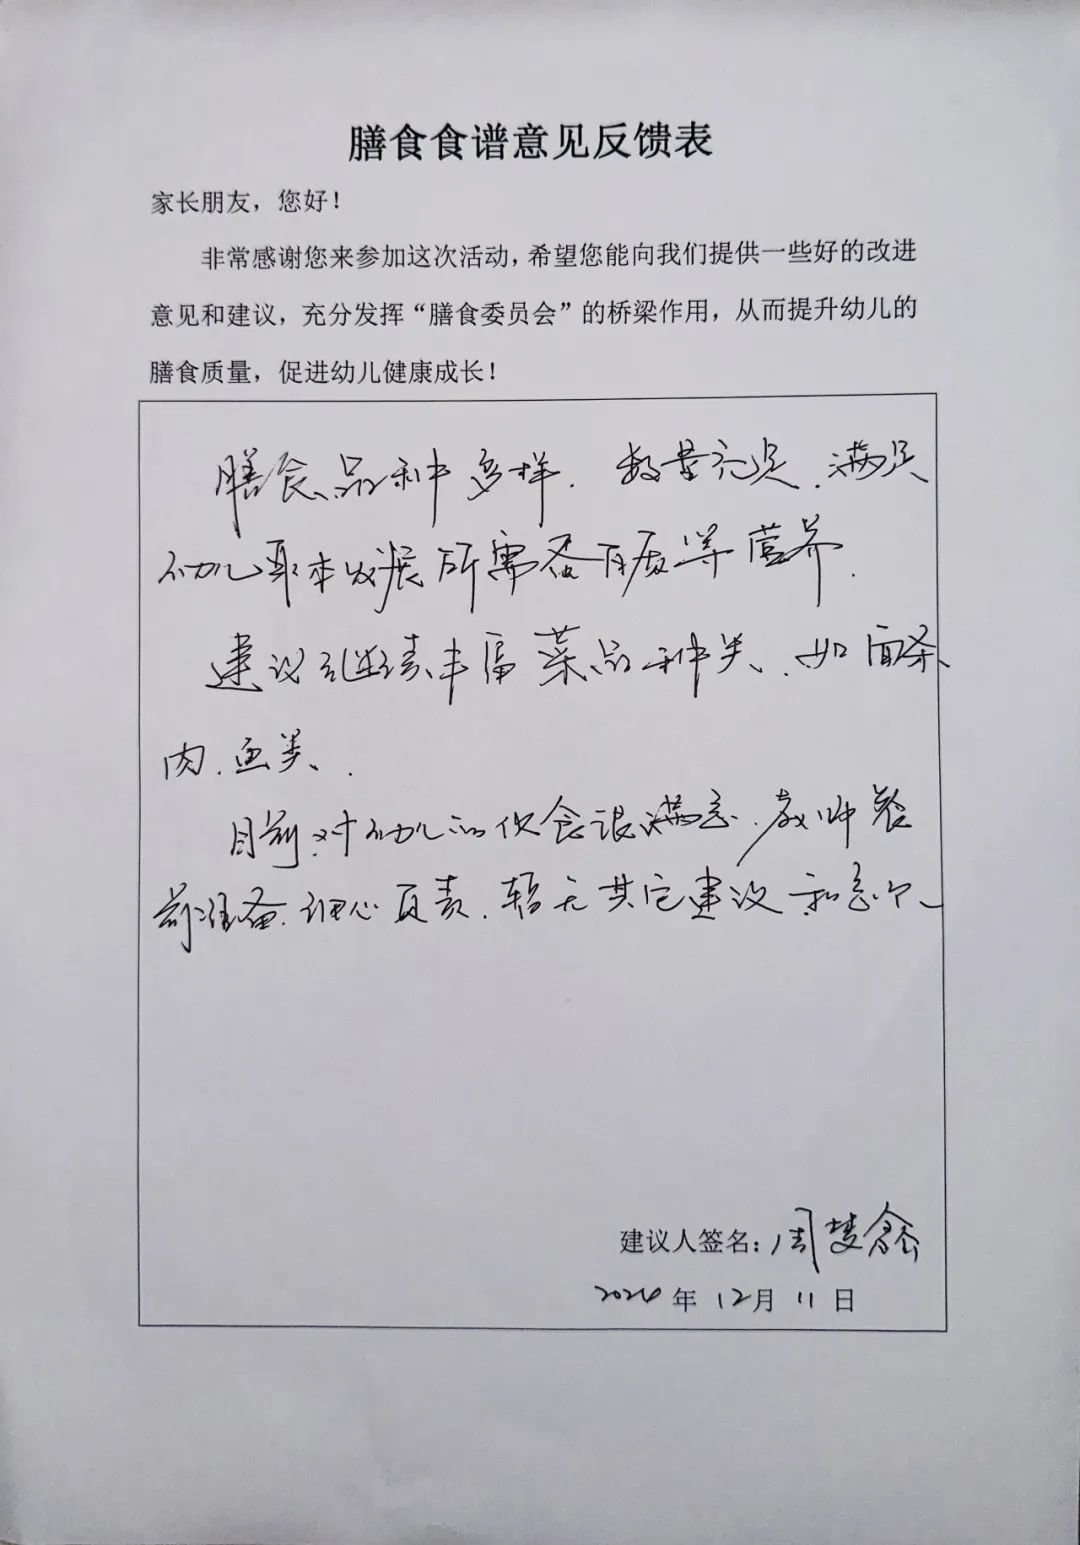 膳食食谱意见反馈表
家长朋友，您好！
非常感谢您来参加这次活动，希望您能向我们提供一些好的改进
意见和建议，充分发挥“膳食委员会”的桥梁作用，从而提升幼儿的
膳食质量，促进幼儿健康成长！
膳食品种多样．数量充足．满足
幼儿基本发展所需蛋白质等营养．
建议继续丰富菜品种类、如面条、
肉．鱼类、．
目前对幼儿的饮食很满意．教师餐
前准备．细心负责．暂无其它建议和意见、
建议人签名：周慧鑫
2024年12月11日